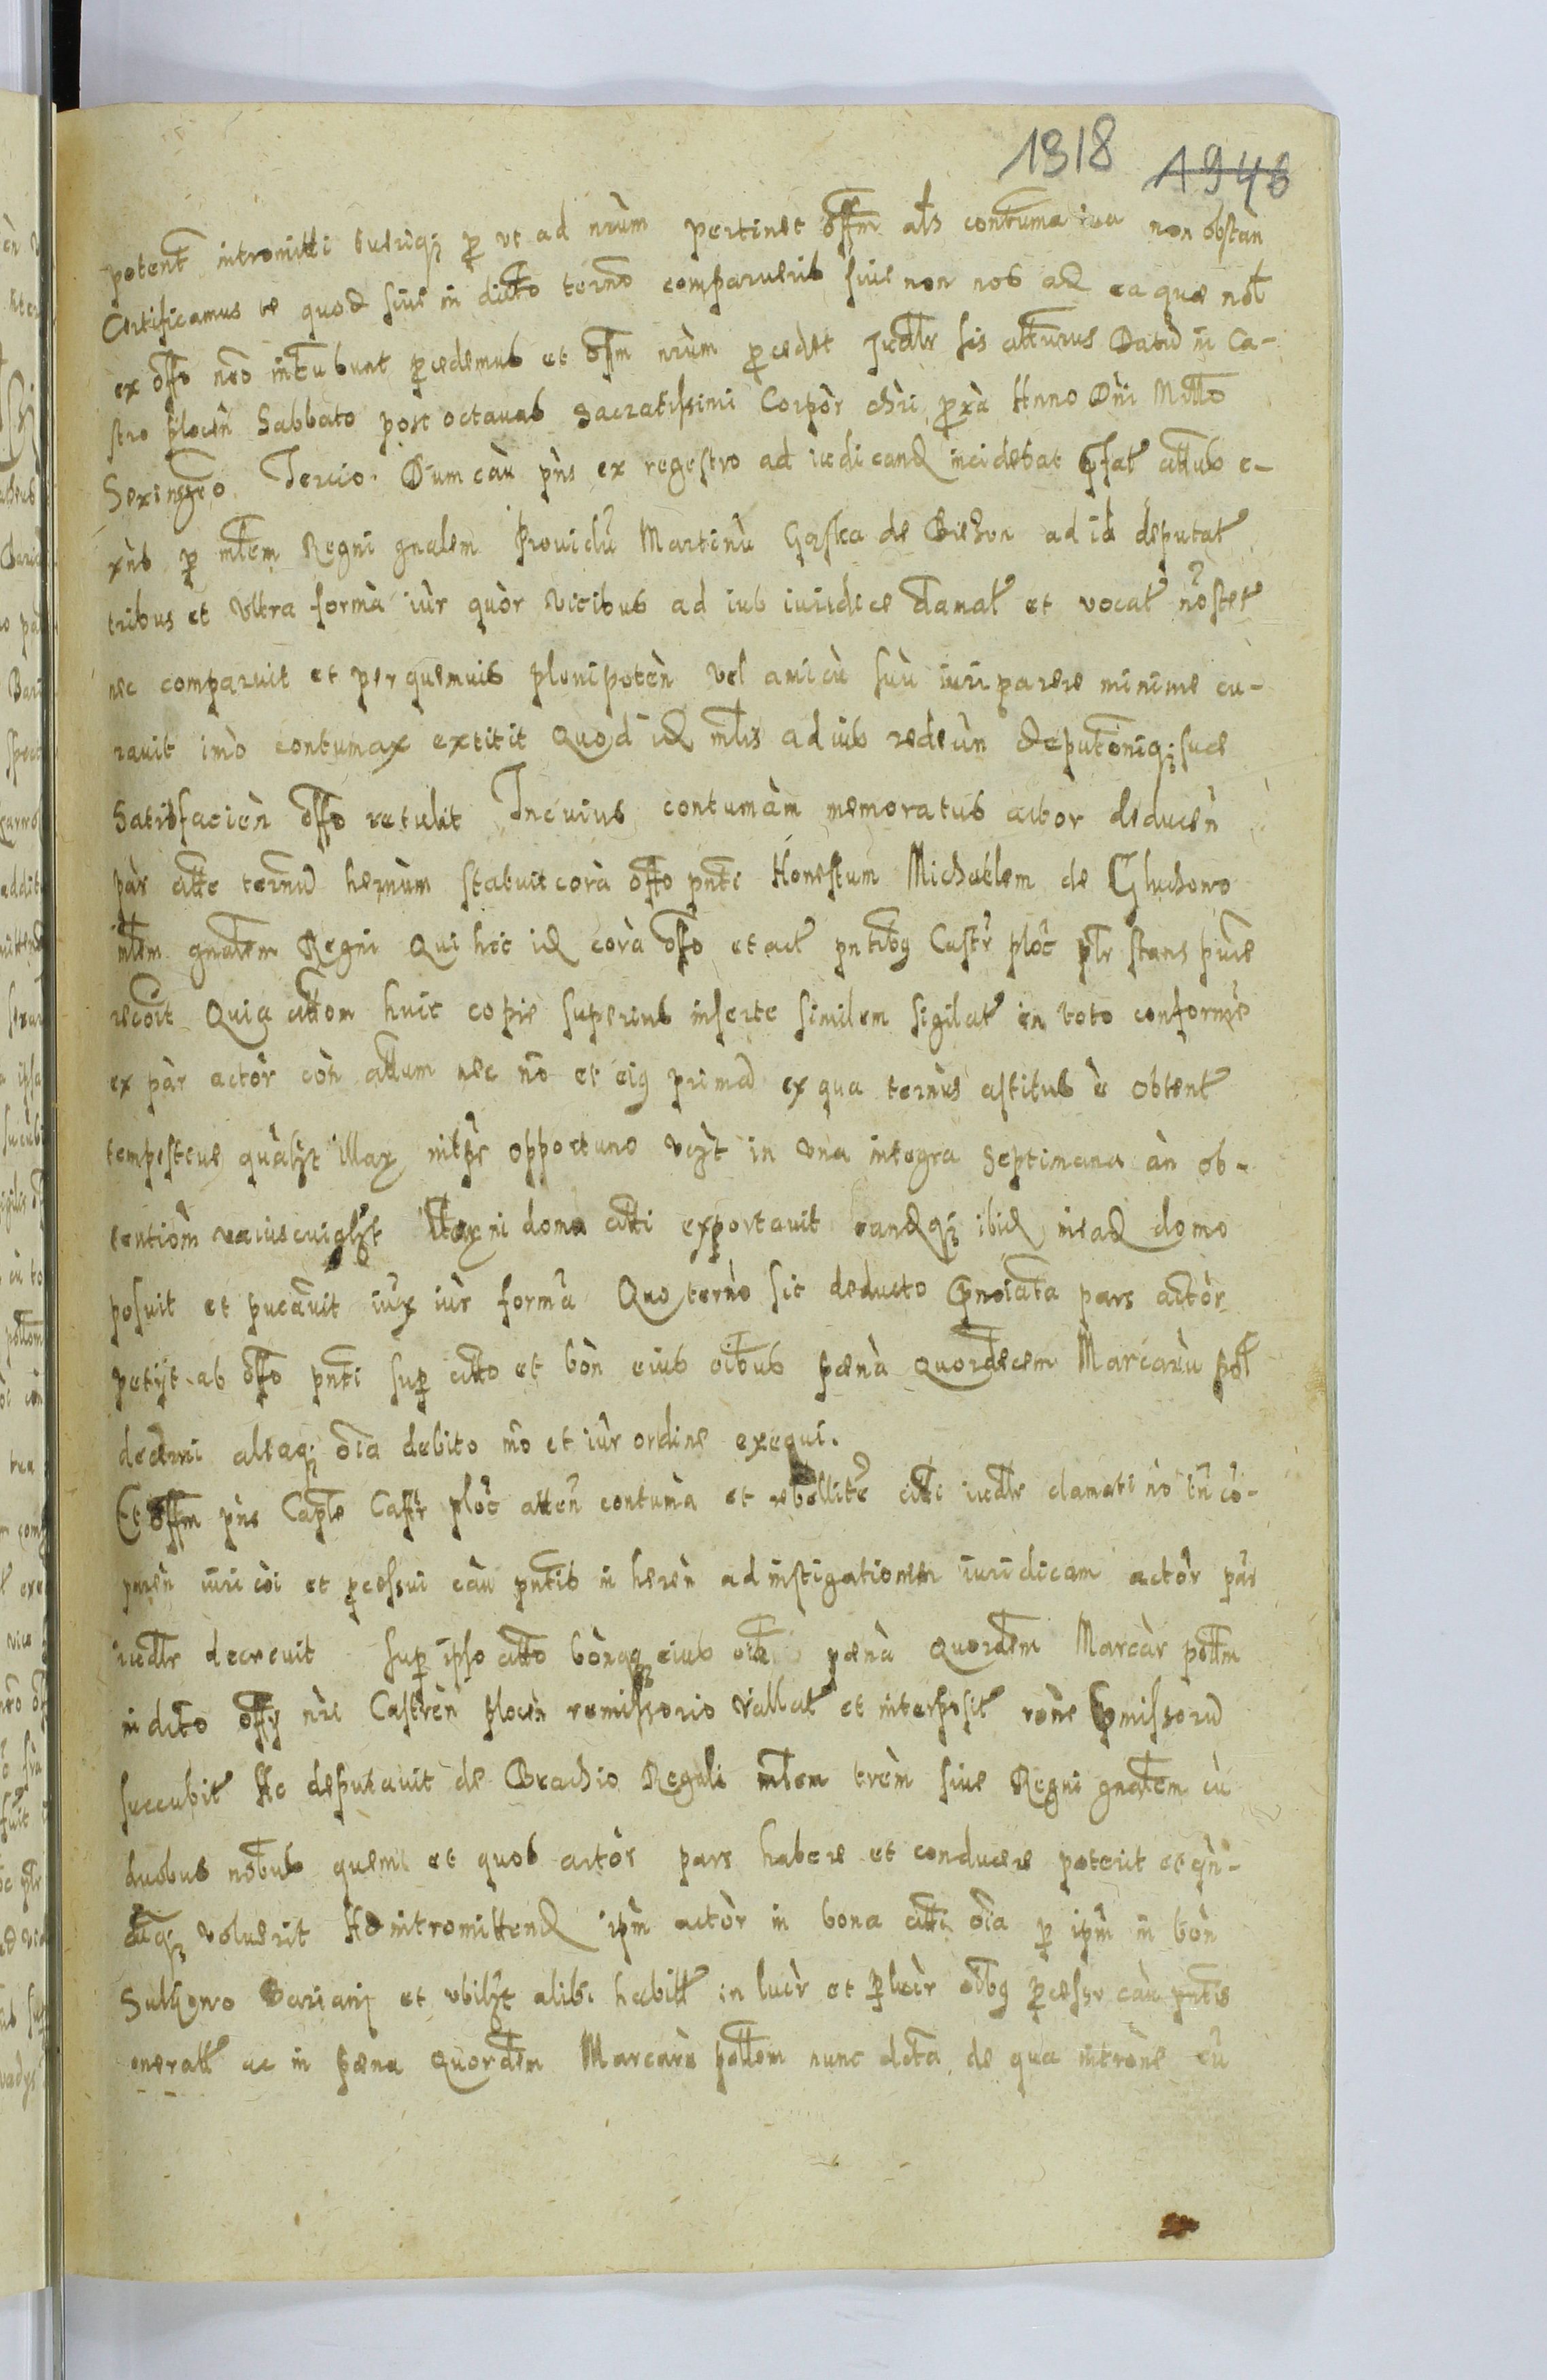 1318 1946
potent intromitti tueriq; p ut ad nrum pertinet offm als contumacia non obstan
Certificamus te quod sive in dicto termo comparueris sive non nos ad ea quæ nobl
ex offo nro incubunt pcedemus et offm nrum pcedet Judlr sis atturus Datū in Ca-
stro plocen Sabbato post octavas Sacratissimi Corpor chri pxa Anno Dni Millo
Sexingeo Tercio. Dum cau pns ex regestro ad iudicand incidebat pfat attus e-
xns p mlem Regni gnalem Providū Martinū Gaska de Biezun ad id deputat
tribus et ultra forma iur quor vicibus ad ius iuridice clamat et vocat nō stet
nec comparuit et per quemuis plenipoten vel amicū suū iuri parere minime cu-
rauit imo contumax extitit Quod id mlis ad ius redeun deputoniq; suæ
Satisfacien offo retulit In cuius contumam memoratus actor deducen
par atte termū hernum statuit cora offo pnte Honestum Michaelem de Gluchowo
mlem gnalem Regni Qui hic id cora offo et act pntibg Castr ploc plr stans puce
recoit Quia attom huic copie superius inserte similem sigilat in toto conforme
ex par actor con attum nec nō et eig prima ex qua termus astitus e obtent
tempestive qualzt illaz nitpe opportuno vczt in una integra septimana an ob-
tentiom uniuscuiqlzt illaz ni domo atti exportavit eandqz ibid in ead domo
posuit et pucavit iux iur forma Quo termo sic deducto pnoiata pars actor
petijt ab offo pnti sup atto et bon eius oibus pæna quordecem Marcaru pol
decerni aliaq; oia debito mo et iur ordine exequi.
Et offm pns Caple Castr ploc atten contuma et rebellite atti iudlr clamati nō tn co-
paren iuri coi et pcessui cau pntis in heren ad instigationem iuridicam actor par
iudlr decrevit sup ipso atto bonqz eius oib pæna Quordem Marcar pollm
in dicto offy nri Castren plocen remissorio vallat et interposit rone pmissoru
succubit Ac deputavit de Brachio Regali mlem trem sive Regni gnalem cu
duobus nobus quem et quos actor pars habere et conducere poterit et qn-
cuq; voluerit Ad intromittend ipm actor in bona atti oia p ipm in bon
Sulkowo Bariany et ubilzt alibi habitt in lucr et plucr oibg pcessu cau pntis
enerat ac in pæna Quordem Marcaru pollem nunc dicta de qua introne cu